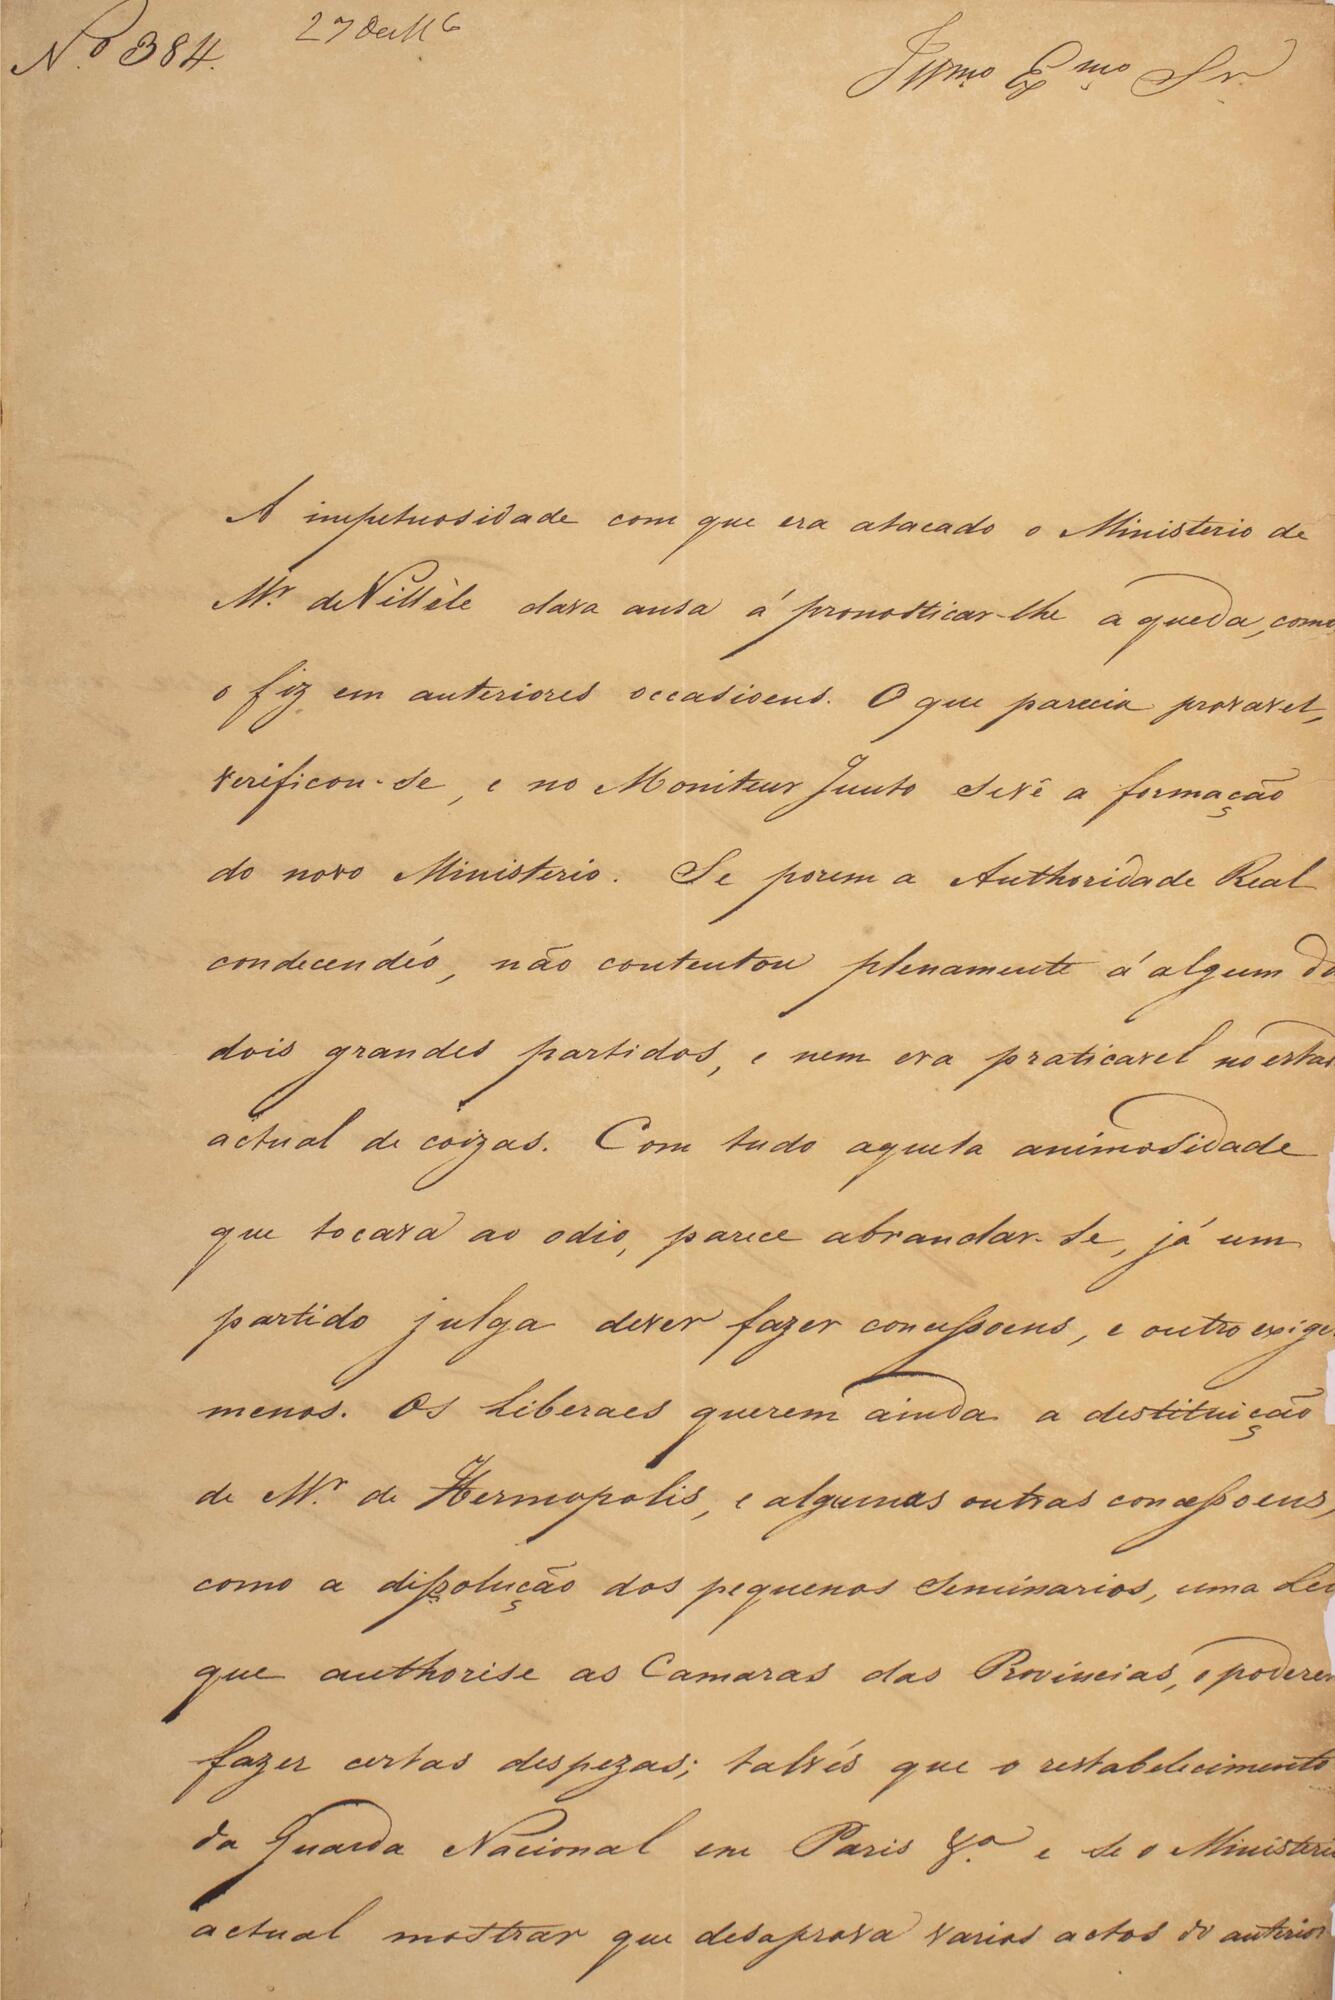 Nº 384.
27
Illmo Exmo Sr.
A impetuosidade com que era atacado o Ministerio de
Mr. de Villèle dava ansa á pronosticar-lhe a queda, como
o fiz em anteriores occasioens. O que parecia provavel,
verificou-se, e no Moniteur junto se vê a formação
do novo Ministerio. Se porem a Authoridade Real
condecendêo, não contentou plenamente á algum do
dois grandes partidos, e nem era praticavel no estad
actual de coizas. Com tudo aquela animosidade
que tocava ao odio, parece abrandar-se, já um
partido julga dever fazer concessoens, e outro exige
menos. Os Liberaes querem ainda a destituição
de Mr. de Hermopolis, e algumas outras concessoens,
como a dissolução dos pequenos Seminarios, uma Lei
que authorise as Camaras das Provincias, o poderem
fazer certas despezas; talvés que o restabelecimento
da Guarda Nacional em Paris &a. e se o Ministerio
actual mostrar que desaprova varios actos do anterior